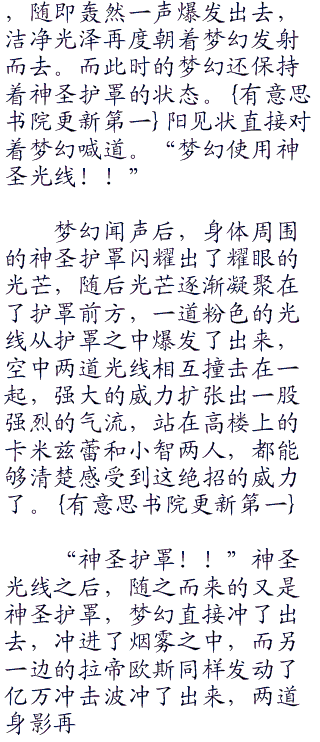 ，随即轰然一声爆发出去，
洁净光泽再度朝着梦幻发射
而去。而此时的梦幻还保持
着神圣护罩的状态。{有意思
书院更新第一} 阳见状直接对
着梦幻喊道。“梦幻使用神
圣光线！！”
梦幻闻声后，身体周围
的神圣护罩闪耀出了耀眼的
光芒，随后光芒逐渐凝聚在
了护罩前方，一道粉色的光
线从护罩之中爆发了出来，
空中两道光线相互撞击在一
起，强大的威力扩张出一股
强烈的气流，站在高楼上的
卡米兹蕾和小智两人，都能
够清楚感受到这绝招的威力
了。{有意思书院更新第一}
“神圣护罩！！”神圣
光线之后，随之而来的又是
神圣护罩，梦幻直接冲了出
去，冲进了烟雾之中，而另
一边的拉帝欧斯同样发动了
亿万冲击波冲了出来，两道
身影再